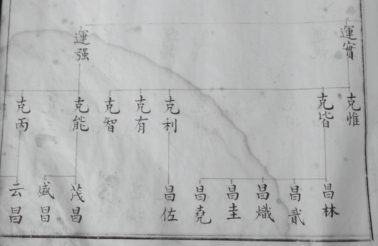 運實
運强
克惟
克皆
克利
克有
克智
克能
克丙
昌林
昌武
昌熾
昌圭
昌堯
昌佐
茂昌
咸昌
云昌